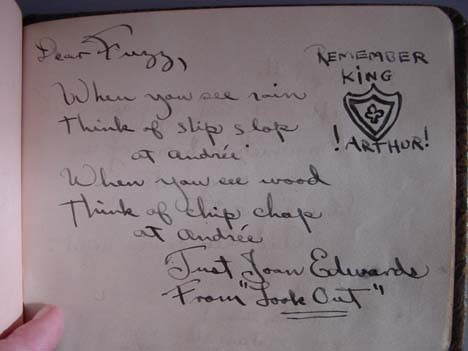 Dear Fuzz,
REMEMBER
KING
! ARTHUR!
When you see rain
Think of slip slop
at Andrée
When you see wood
Think of chip chap
at Andrée
Just Joan Edwards
From "Look Out"